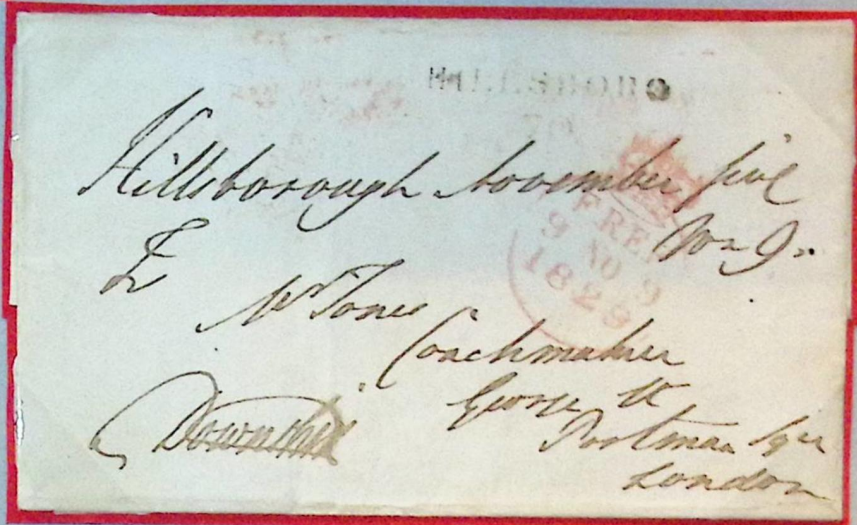 HILLSBORO
70
Hillsborough November five
FREE
9 NO 9
1829
Mr Jones
Coachmaker
George St
Portman Sqre
London
Downshire